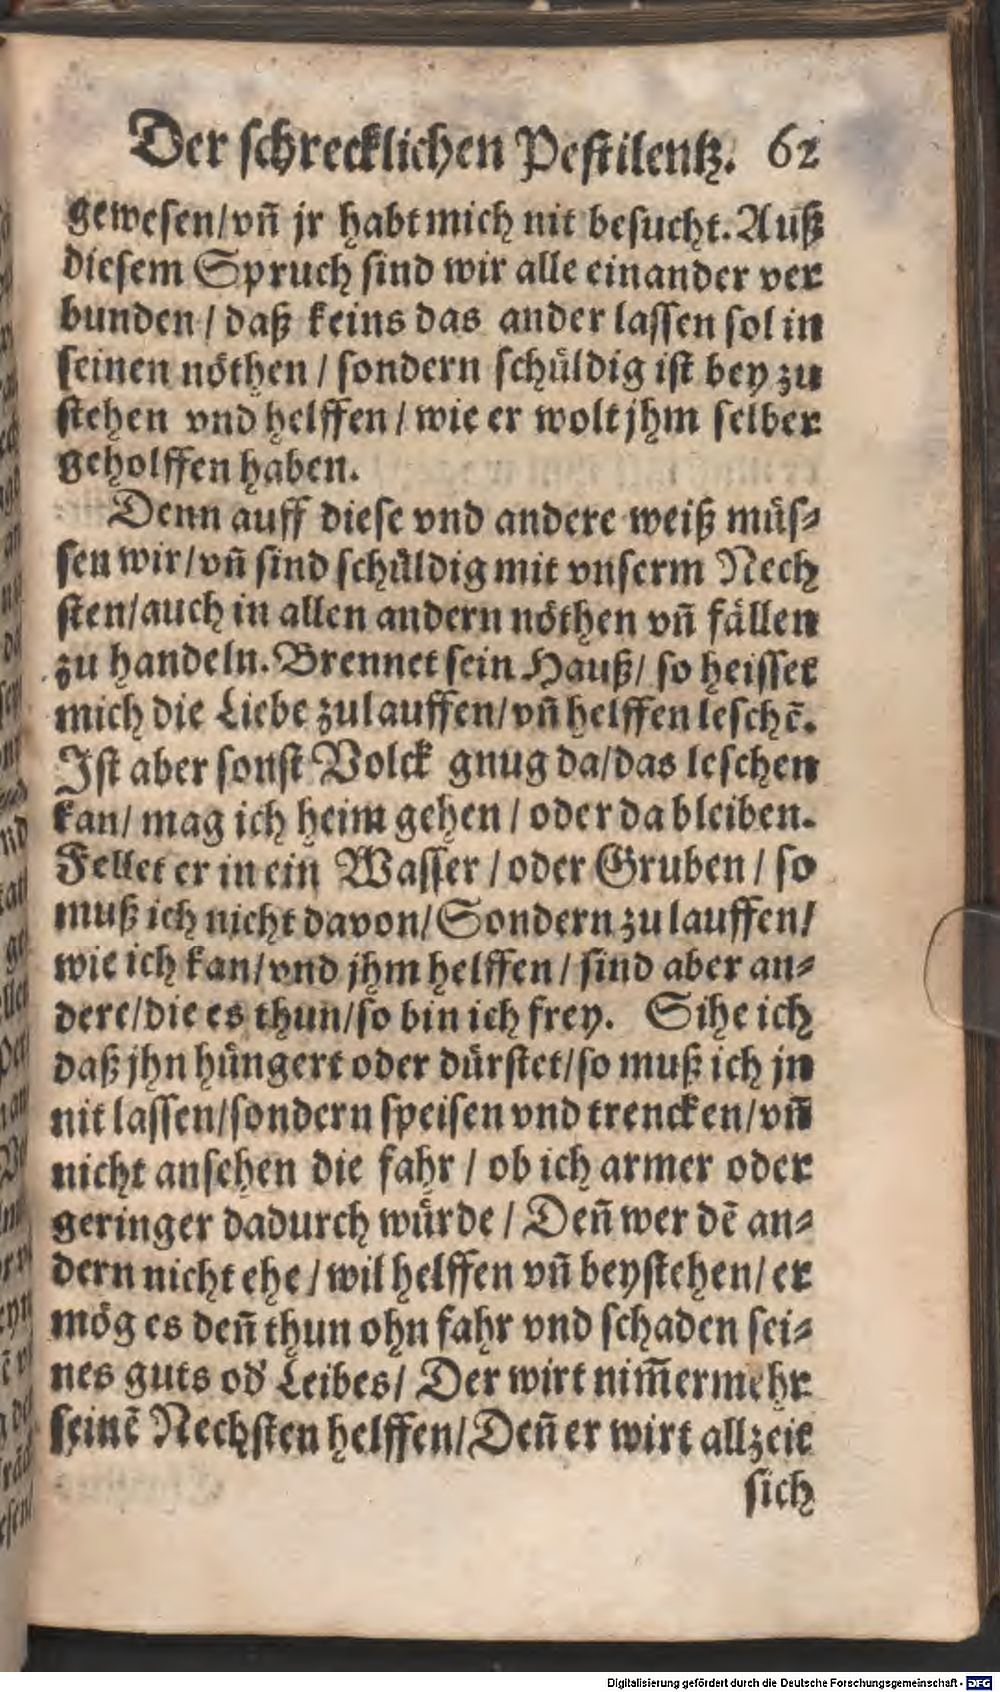 Der schrecklichen Pestilentz. 62
gewesen/vñ jr habt mich nit besucht. Auß
diesem Spruch sind wir alle einander ver
bunden / daß keins das ander lassen sol in
seinen nöthen / sondern schüldig ist bey zu
stehen vnd helffen / wie er wolt jhm selber
geholffen haben.
Denn auff diese vnd andere weiß müs⸗
sen wir/vñ sind schüldig mit vnserm Nech
sten/auch in allen andern nöthen vñ fällen
zu handeln. Brennet sein Hauß/ so heisset
mich die Liebe zulauffen/vñ helffen leschẽ.
Ist aber sonst Volck gnug da/das leschen
kan/ mag ich heim gehen / oder da bleiben.
Fellet er in ein Wasser / oder Gruben / so
muß ich nicht davon/Sondern zu lauffen/
wie ich kan/vnd jhm helffen / sind aber an⸗
dere/die es thun/so bin ich frey. Sihe ich
daß jhn hüngert oder dürstet/so muß ich jn
nit lassen/sondern speisen vnd trencken/vñ
nicht ansehen die fahr / ob ich armer oder
geringer dadurch würde / Deñ wer dẽ an⸗
dern nicht ehe / wil helffen vñ beystehen/ er
mög es deñ thun ohn fahr vnd schaden sei⸗
nes guts od' Leibes/ Der wirt nim̃ermehr
seinẽ Nechsten helffen/Deñ er wirt allzeit
sich
Digitalisierung gefördert durch die Deutsche Forschungsgemeinschaft - DFG